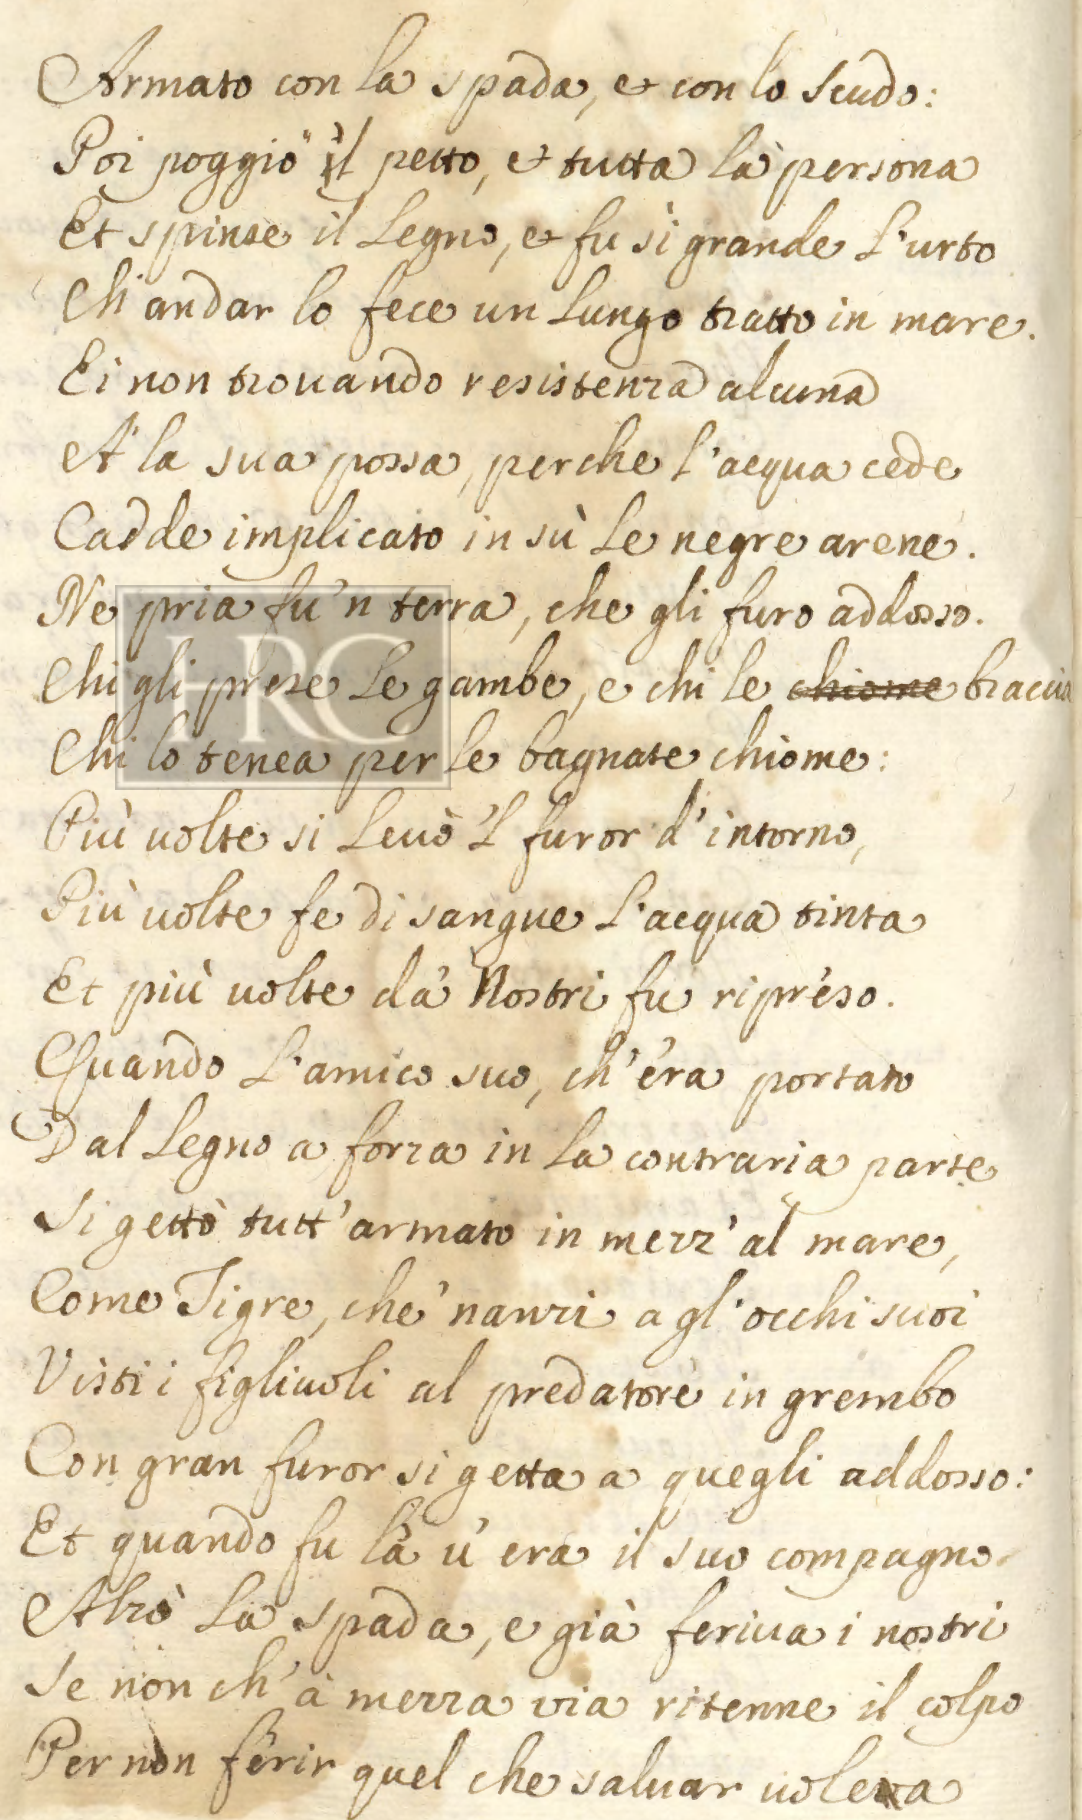 Armato con la spada, et con lo scudo:
Poi poggiò il petto, et tutta la persona
Et spinse il legno, et fu sì grande l'urto
Ch'andar lo fece un lungo tratto in mare.
Ei non trouando resistenza alcuna
A' la sua possa, perche l'acqua cede
Cadde implicato in sù le negre arene.
Ne pria fu'n terra, che gli furo addosso.
Chi gli prese le gambe, e chi le chiome braccia
Chi lo tenea per le bagnate chiome:
Più uolte si leuò 'l furor d'intorno,
Più uolte fe di sangue l'acqua tinta
Et più uolte da' Nostri fu ripreso.
Quando l'amico suo, ch'era portato
Dal legno a forza in la contraria parte
Si gettò tutt'armato in mezz'al mare,
Come Tigre, che 'nanzi a gl'occhi suoi
Visti i figliuoli al predatore in grembo
Con gran furor si getta a quegli addosso:
Et quando fu là u' era il suo compagno
Alzò la spada, e già feriua i nostri
Se non ch'a mezza via ritenne il colpo
Per non ferir quel che saluar uoleva
HRC